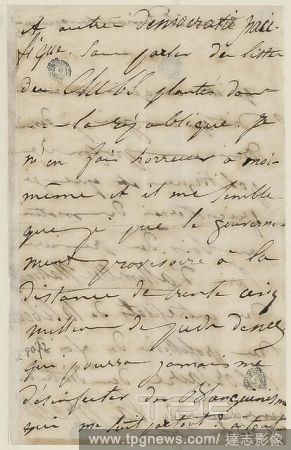 A autre démocratie paci-
fique. Sans parler de listes
de clubs plantés dans
la république je
m'en fais horreur à moi-
même et il me semble
que je que le gouverne-
ment provisoire à la
distance de trente cinq
millions de pieds de nez
qui pourra jamais me
désinfecter du
qui me suit partout
www.tpgnews.com/ 達志影像